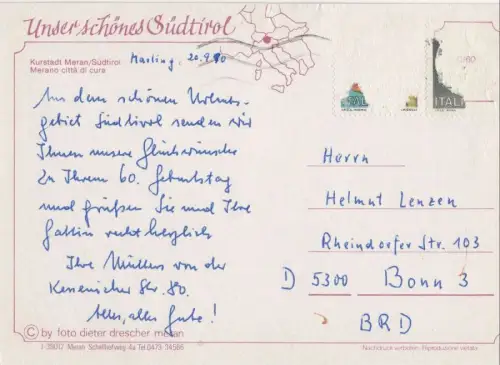 Unser schönes Südtirol
Kurstadt Meran/Südtirol
Merano città di cura
Marling, 20.9.80
Aus dem schönen Urlaubs-
gebiet Südtirol senden wir
Ihnen unsere Glückwünsche
zu Ihrem 60. Geburtstag
und grüßen Sie und Ihre
Gattin recht herzlich
Ihre Müllers von der
Kessenicher Str. 80.
Alles, alles Gute!
© by foto dieter drescher meran
I-39012 Meran Schafferweg 4a Tel. 0473 34586
ITALI
Herrn
Helmut Lenzen
Rheindorfer Str. 103
D 5300 Bonn 3
BRD
Nachdruck verboten - Riproduzione vietata